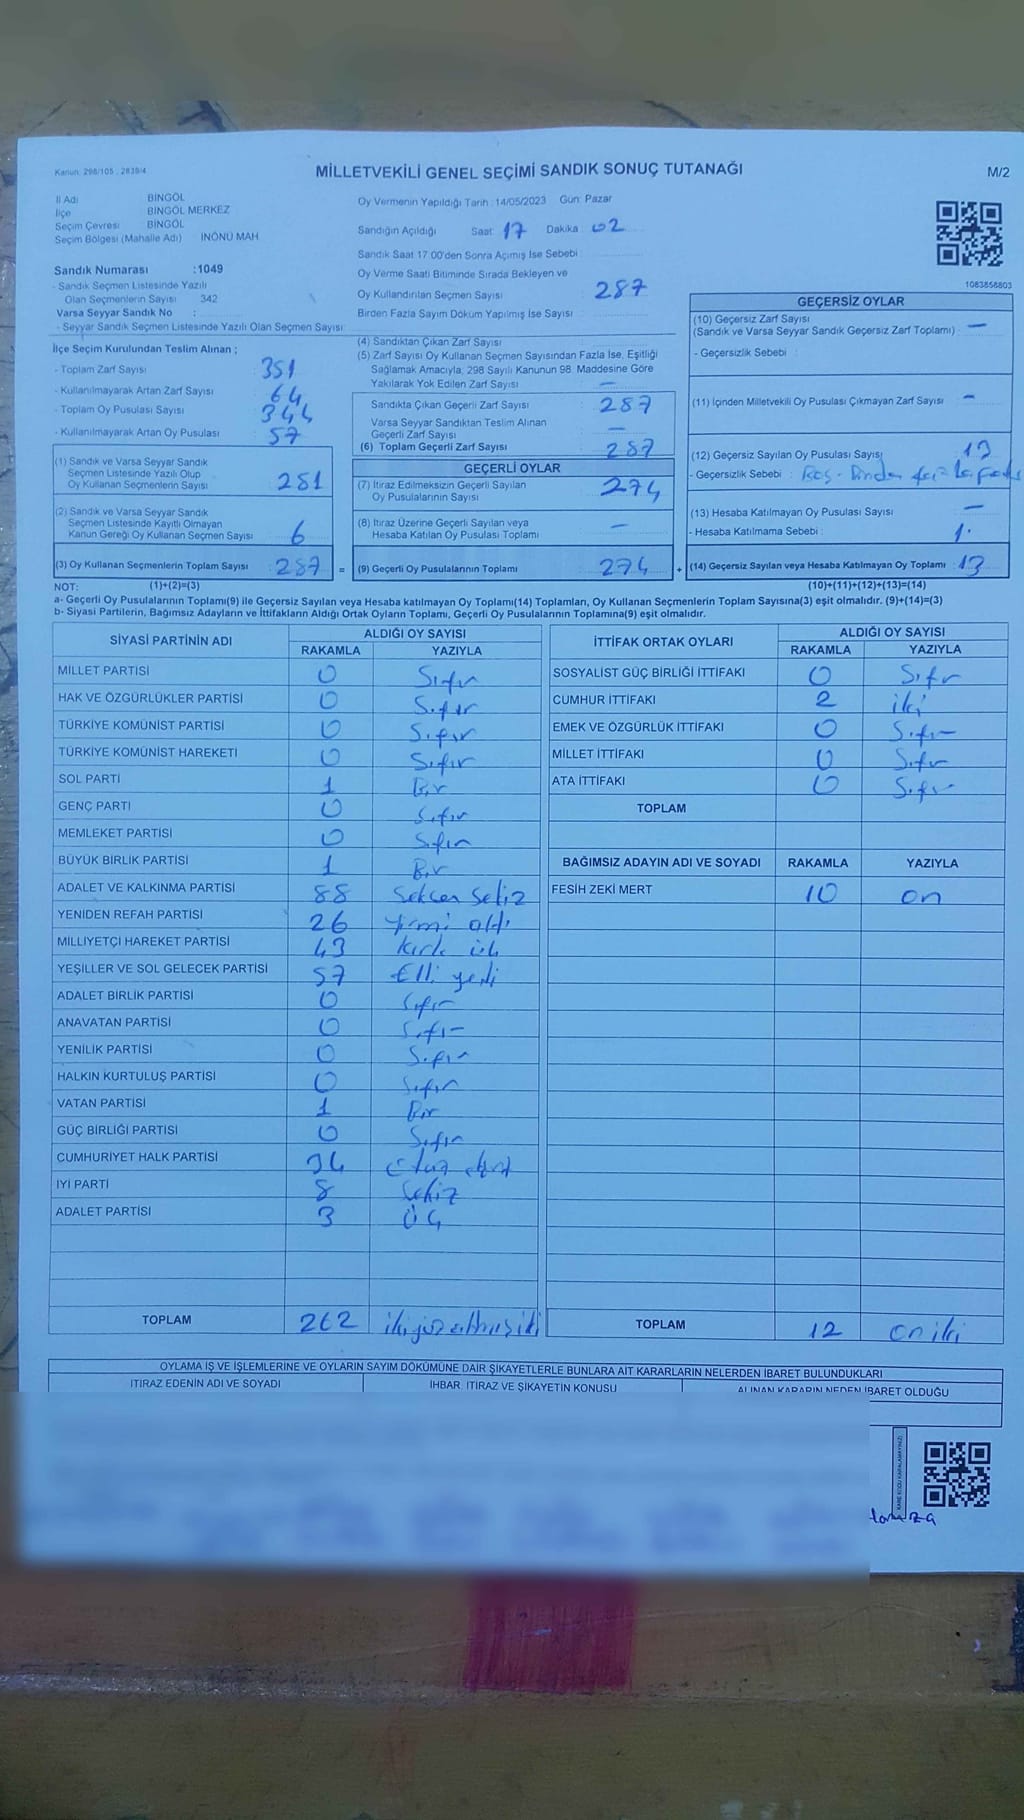 Kanun: 298/105 , 2839/4
MİLLETVEKİLİ GENEL SEÇİMİ SANDIK SONUÇ TUTANAĞI
M/2
İl Adı BİNGÖL
İlçe BİNGÖL MERKEZ
Seçim Çevresi BİNGÖL
Seçim Bölgesi (Mahalle Adı) İNÖNÜ MAH
Oy Vermenin Yapıldığı Tarih : 14/05/2023 Gün: Pazar
Sandığın Açıldığı Saat 17 Dakika 02
Sandık Saat 17:00'den Sonra Açımış İse Sebebi :
Oy Verme Saati Bitiminde Sırada Bekleyen ve
Oy Kullandırılan Seçmen Sayısı : 287
Birden Fazla Sayım Döküm Yapılmış İse Sayısı :
Sandık Numarası :1049
- Sandık Seçmen Listesinde Yazılı
Olan Seçmenlerin Sayısı 342
Varsa Seyyar Sandık No :
- Seyyar Sandık Seçmen Listesinde Yazılı Olan Seçmen Sayısı:
İlçe Seçim Kurulundan Teslim Alınan ;
- Toplam Zarf Sayısı : 351
- Kullanılmayarak Artan Zarf Sayısı : 64
- Toplam Oy Pusulası Sayısı : 344
- Kullanılmayarak Artan Oy Pusulası : 57
(1) Sandık ve Varsa Seyyar Sandık
Seçmen Listesinde Yazılı Olup
Oy Kullanan Seçmenlerin Sayısı : 281
(2) Sandık ve Varsa Seyyar Sandık
Seçmen Listesinde Kayıtlı Olmayan
Kanun Gereği Oy Kullanan Seçmen Sayısı : 6
(3) Oy Kullanan Seçmenlerin Toplam Sayısı : 287 =
(4) Sandıktan Çıkan Zarf Sayısı :
(5) Zarf Sayısı Oy Kullanan Seçmen Sayısından Fazla İse, Eşitliği
Sağlamak Amacıyla, 298 Sayılı Kanunun 98. Maddesine Göre
Yakılarak Yok Edilen Zarf Sayısı : —
Sandıkta Çıkan Geçerli Zarf Sayısı : 287
Varsa Seyyar Sandıktan Teslim Alınan
Geçerli Zarf Sayısı : —
(6) Toplam Geçerli Zarf Sayısı : 287
GEÇERLİ OYLAR
(7) İtiraz Edilmeksizin Geçerli Sayılan
Oy Pusulalarının Sayısı : 274
(8) İtiraz Üzerine Geçerli Sayılan veya
Hesaba Katılan Oy Pusulası Toplamı : —
(9) Geçerli Oy Pusulalarının Toplamı : 274 +
1083858803
GEÇERSİZ OYLAR
(10) Geçersiz Zarf Sayısı
(Sandık ve Varsa Seyyar Sandık Geçersiz Zarf Toplamı) : —
- Geçersizlik Sebebi :
(11) İçinden Milletvekili Oy Pusulası Çıkmayan Zarf Sayısı : —
(12) Geçersiz Sayılan Oy Pusulası Sayısı : 13
- Geçersizlik Sebebi :
(13) Hesaba Katılmayan Oy Pusulası Sayısı : —
- Hesaba Katılmama Sebebi :
(14) Geçersiz Sayılan veya Hesaba Katılmayan Oy Toplamı : 13
NOT: (1)+(2)=(3)
(10)+(11)+(12)+(13)=(14)
a- Geçerli Oy Pusulalarının Toplamı(9) ile Geçersiz Sayılan veya Hesaba katılmayan Oy Toplamı(14) Toplamları, Oy Kullanan Seçmenlerin Toplam Sayısına(3) eşit olmalıdır. (9)+(14)=(3)
b- Siyasi Partilerin, Bağımsız Adayların ve İttifakların Aldığı Ortak Oyların Toplamı, Geçerli Oy Pusulalarının Toplamına(9) eşit olmalıdır.
SİYASİ PARTİNİN ADI ALDIĞI OY SAYISI
RAKAMLA YAZIYLA
MİLLET PARTİSİ 0 Sıfır
HAK VE ÖZGÜRLÜKLER PARTİSİ 0 Sıfır
TÜRKİYE KOMÜNİST PARTİSİ 0 Sıfır
TÜRKİYE KOMÜNİST HAREKETİ 0 Sıfır
SOL PARTİ 1 Bir
GENÇ PARTİ 0 Sıfır
MEMLEKET PARTİSİ 0 Sıfır
BÜYÜK BİRLİK PARTİSİ 1 Bir
ADALET VE KALKINMA PARTİSİ 88 Seksen Sekiz
YENİDEN REFAH PARTİSİ 26 Yirmi altı
MİLLİYETÇİ HAREKET PARTİSİ 43 Kırk üç
YEŞİLLER VE SOL GELECEK PARTİSİ 57 Elli yedi
ADALET BİRLİK PARTİSİ 0 Sıfır
ANAVATAN PARTİSİ 0 Sıfır
YENİLİK PARTİSİ 0 Sıfır
HALKIN KURTULUŞ PARTİSİ 0 Sıfır
VATAN PARTİSİ 1 Bir
GÜÇ BİRLİĞİ PARTİSİ 0 Sıfır
CUMHURİYET HALK PARTİSİ 34 Otuz dört
İYİ PARTİ 8 Sekiz
ADALET PARTİSİ 3 Üç
TOPLAM 262 ikiyüz altmış iki
İTTİFAK ORTAK OYLARI ALDIĞI OY SAYISI
RAKAMLA YAZIYLA
SOSYALİST GÜÇ BİRLİĞİ İTTİFAKI 0 Sıfır
CUMHUR İTTİFAKI 2 iki
EMEK VE ÖZGÜRLÜK İTTİFAKI 0 Sıfır
MİLLET İTTİFAKI 0 Sıfır
ATA İTTİFAKI 0 Sıfır
TOPLAM
BAĞIMSIZ ADAYIN ADI VE SOYADI RAKAMLA YAZIYLA
FESİH ZEKİ MERT 10 on
TOPLAM 12 on iki
OYLAMA İŞ VE İŞLEMLERİNE VE OYLARIN SAYIM DÖKÜMÜNE DAİR ŞİKAYETLERLE BUNLARA AİT KARARLARIN NELERDEN İBARET BULUNDUKLARI
İTİRAZ EDENİN ADI VE SOYADI İHBAR, İTİRAZ VE ŞİKAYETİN KONUSU ALINAN KARARIN NEDEN İBARET OLDUĞU